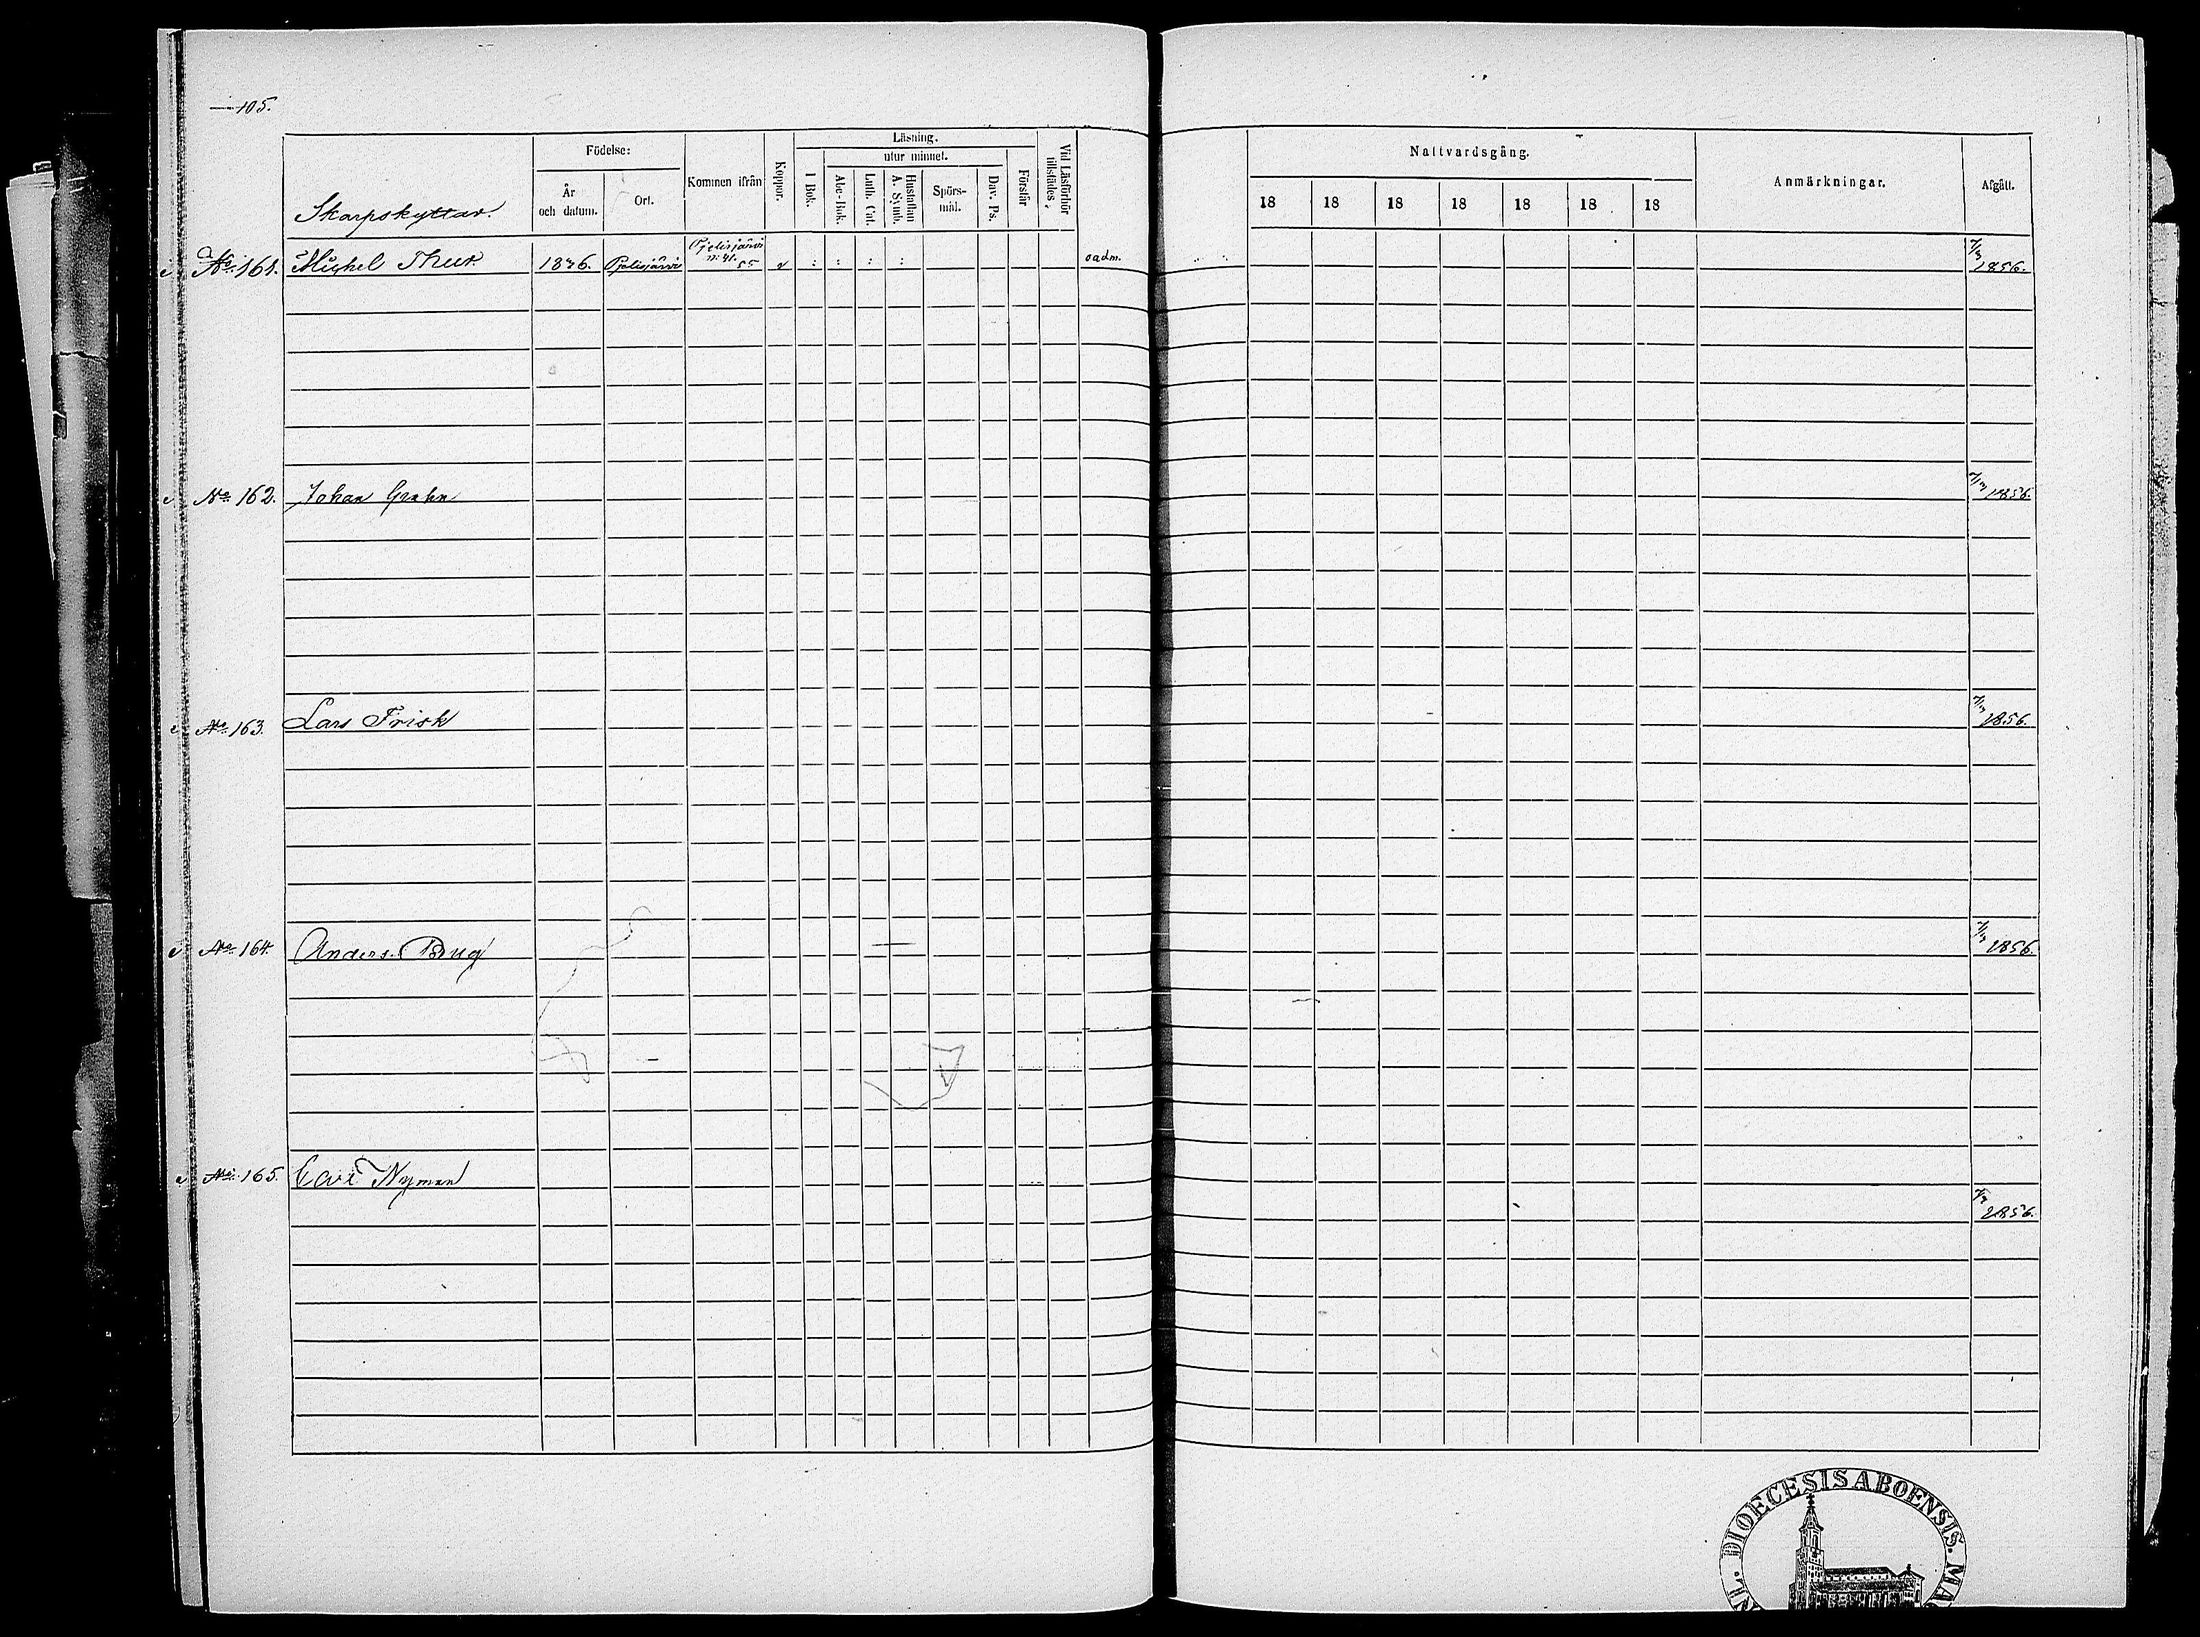 105.
Födelse:
Läsning.
utur minnet.
Nattvardsgång.
Skarpskyttar.
År och datum.
Ort.
Kommen ifrån
Koppor.
I Bok.
Abc-Bok.
Luth. Cat.
Hustaflan A. Symb.
Spörs-mål.
Dav. Ps.
Förstår
Vid Läsförhör tillstädes,
18 18 18 18 18 18 18
Anmärkningar.
Afgått.
No. 161. Michel Thur. 1836. Pjelisjärvi Pjelisjärvi n: 41. 55 v : : : : oadm. 7/3 1856.
No 162. Johan Grahn 7/3 1856.
No 163. Lars Frisk 7/3 1856.
No 164. Anders Brug 7/3 1856.
No 165. Carl Nyman 7/3 1856.
DIOECESIS ABOENSIS. MA